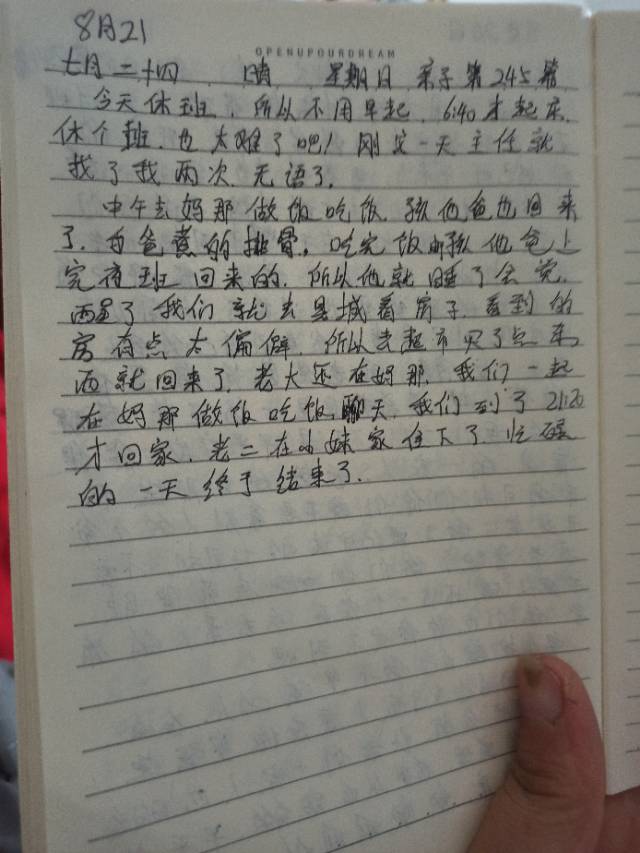 8月21
OPENUPOURDREAM
七月二十四 晴 星期日 亲子第245篇
今天休班,所以不用早起,6:40才起床,
休个班,也太难了吧!刚安一天主任就
找了我两次,无语了,
中午去妈那做饭吃饭,孩他爸也回来
了,自爸煮的排骨,吃完饭孩他爸上
完夜班回来的,所以他就睡了会觉,
两点了我们就去县城看房子,看到的
房有点太偏僻,所以去超市买了点东
西就回来了,老大还在妈那,我们一起
在妈那做饭吃饭,聊天,我们到了21:20
才回家,老二在小妹家住下了,忙碌
的一天终于结束了,